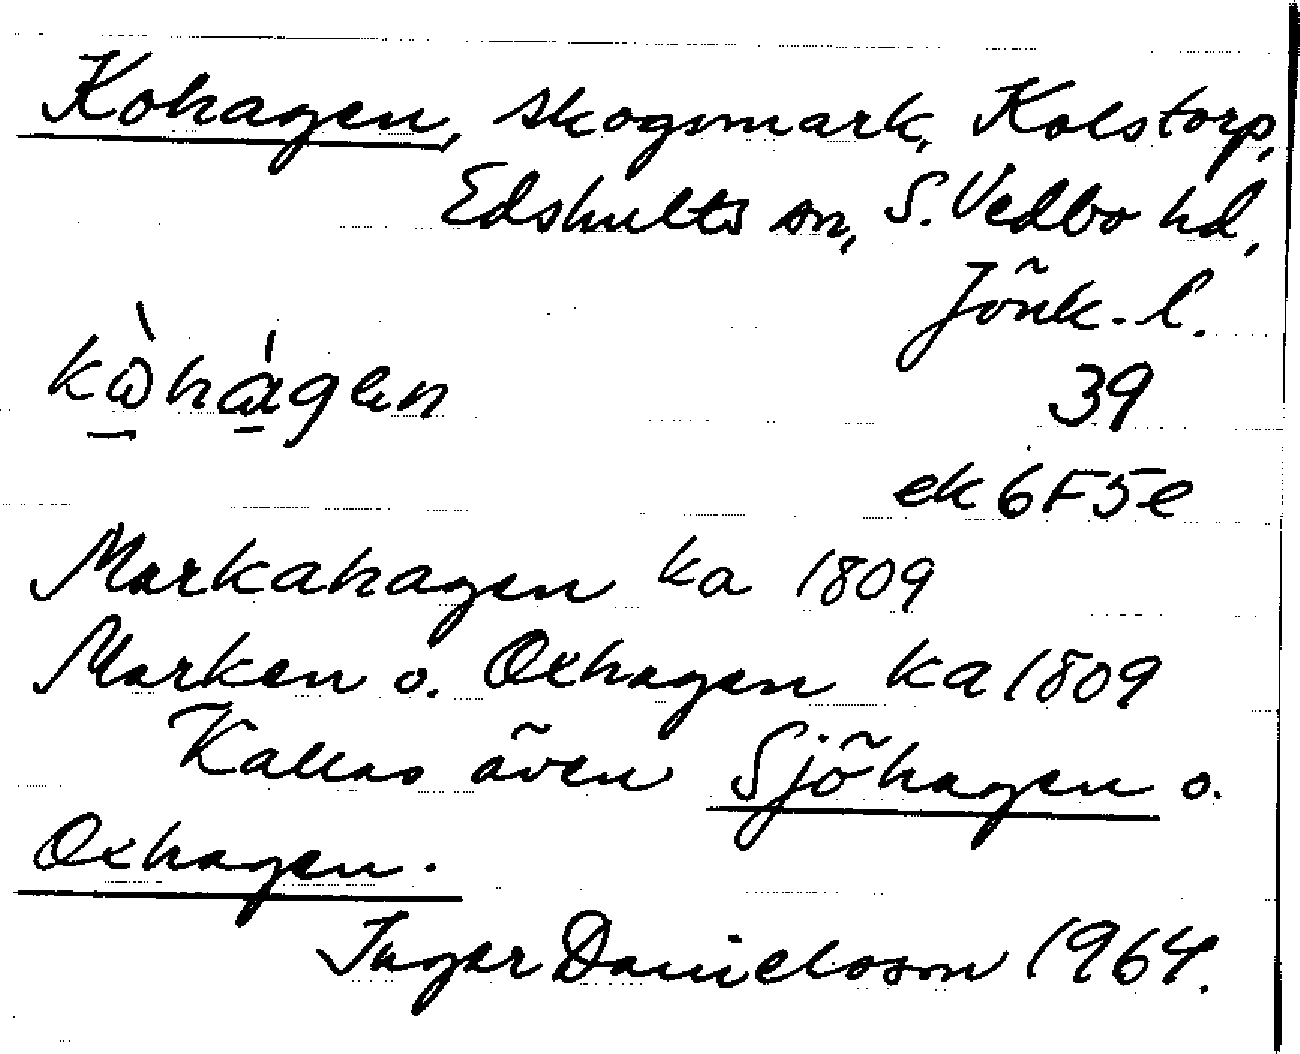 Kohagen, skogsmark, Kolstorp,
Edshults sn, S. Vedbo hd,
Jönk. l.
kὼhὰgen
39
ek 6F5e
Markahagen ka 1809
Marken o. Oxhagen ka 1809
Kallas även Sjöhagen o.
Oxhagen.
Inger Danielsson 1964.